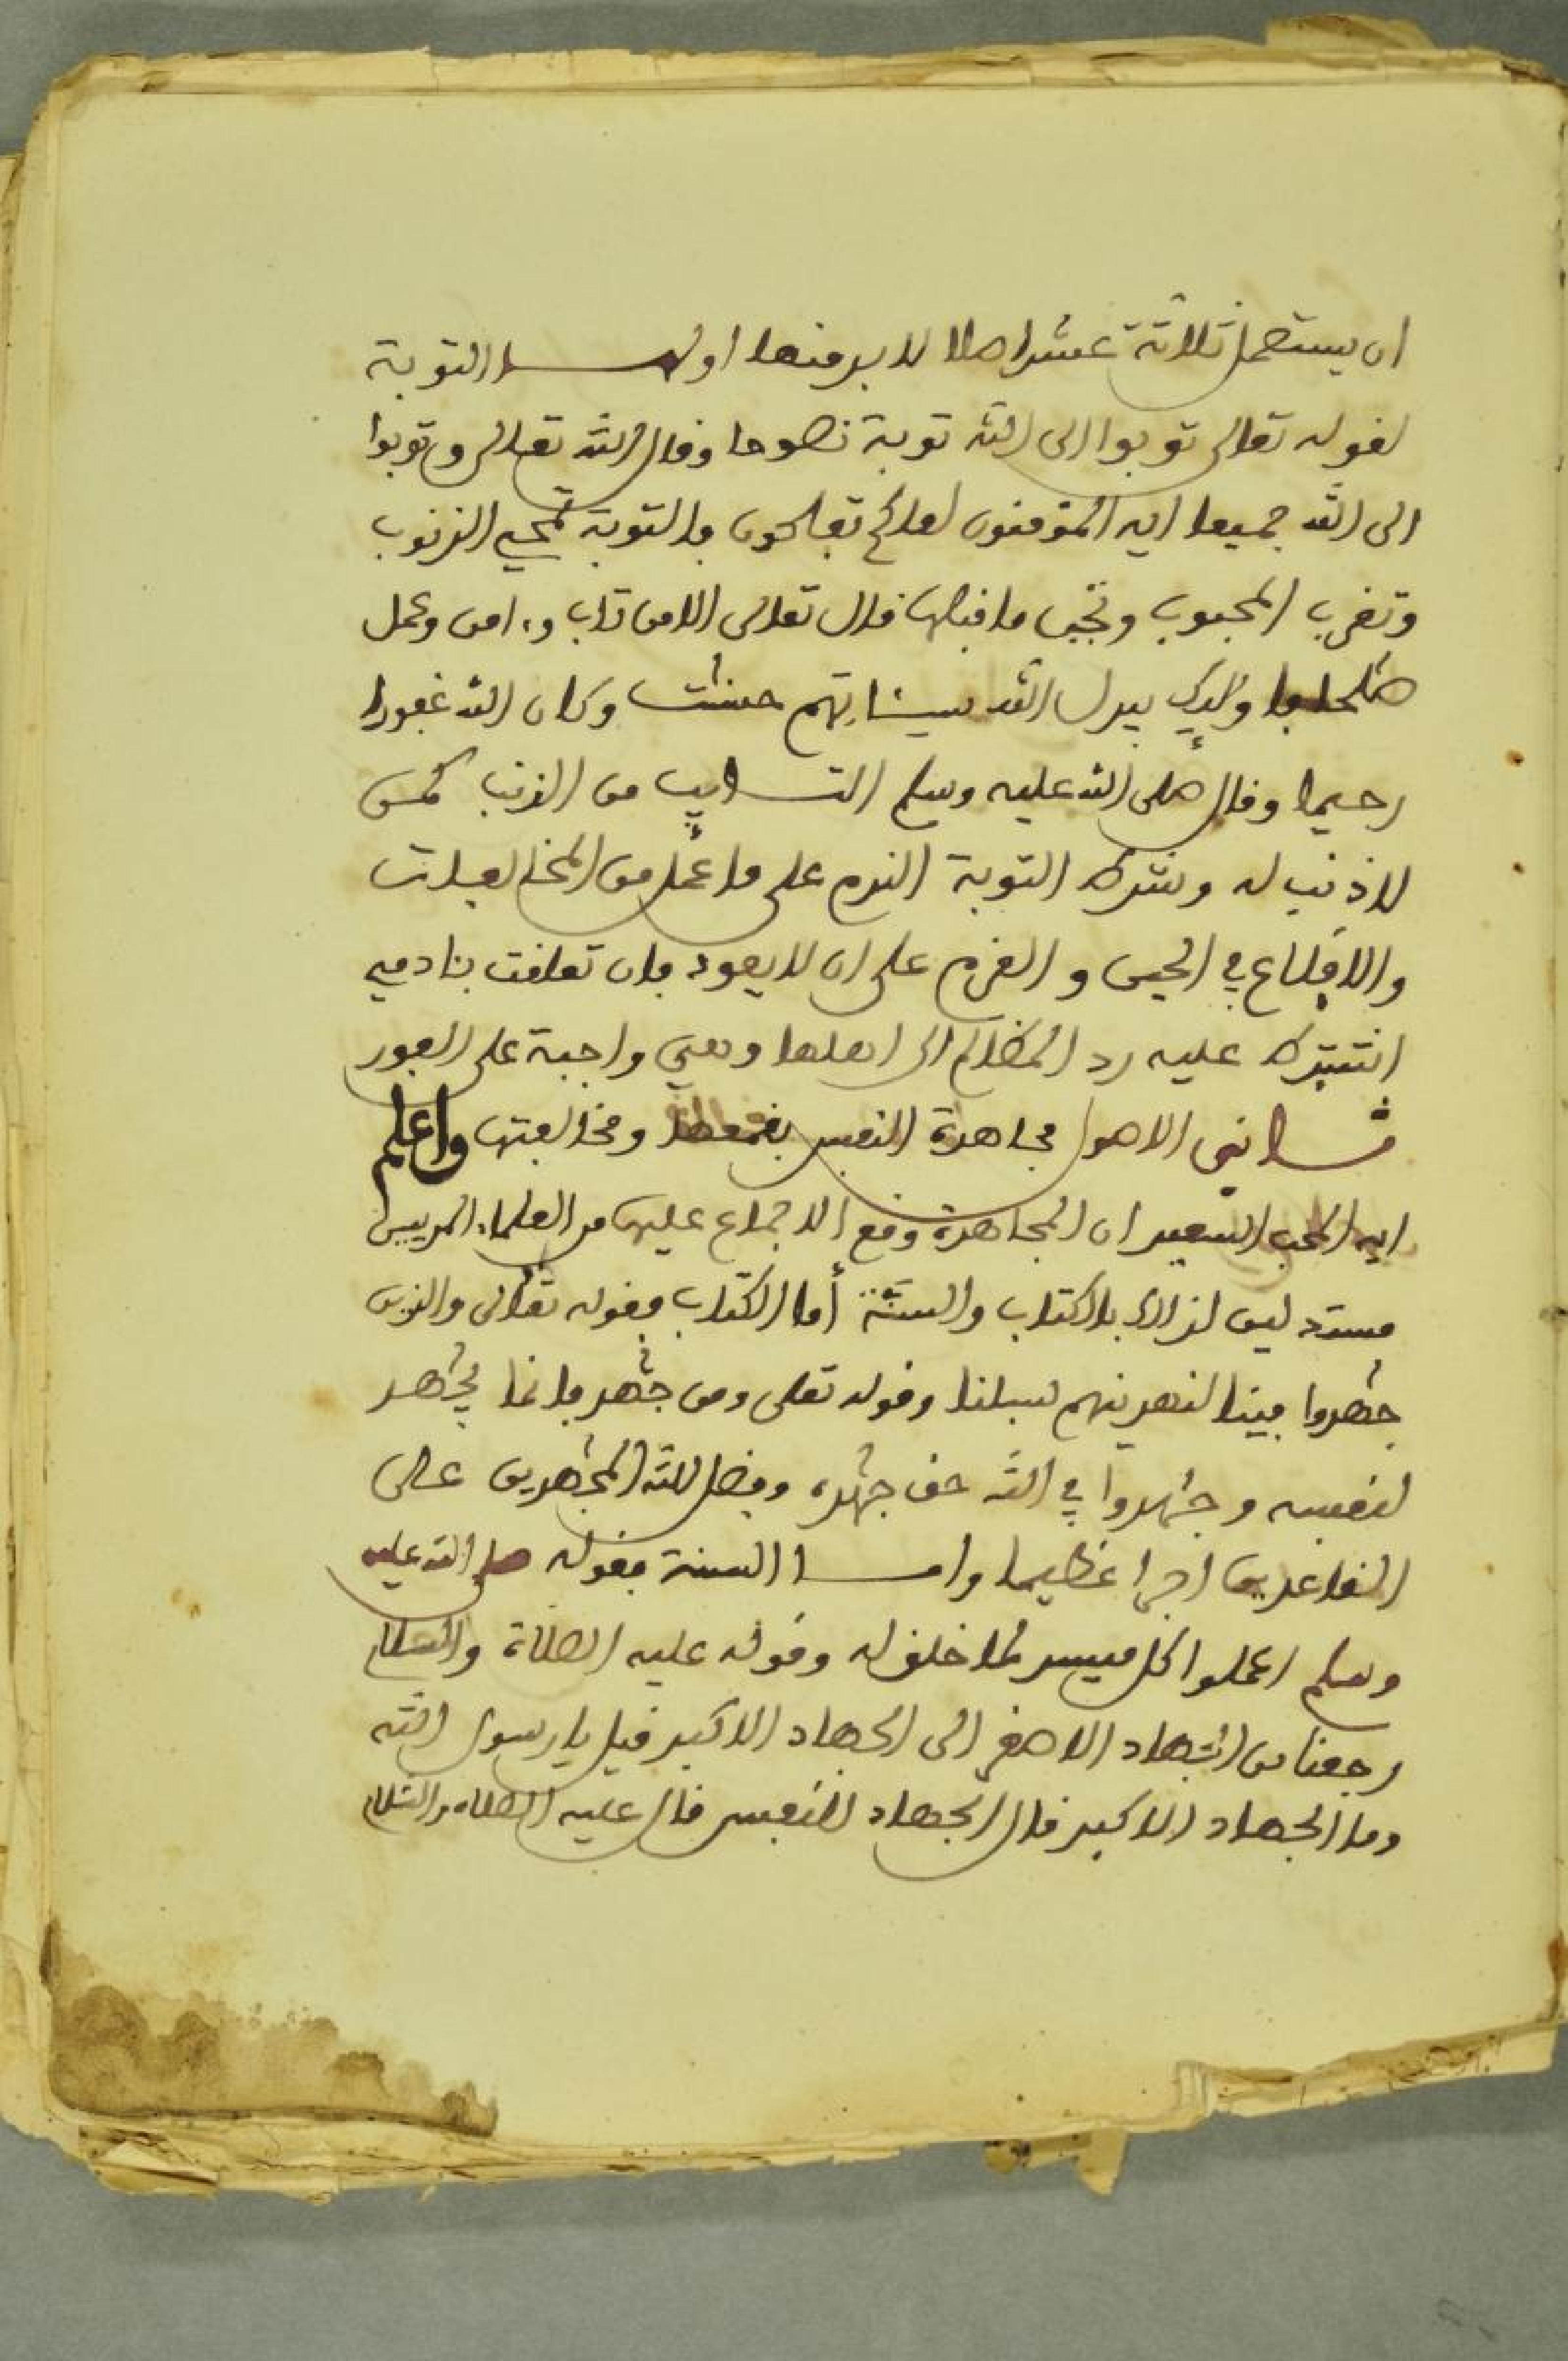 ان يستعمل ثلاثة عشر اصلا لا بد منها اولها التوبة
لقوله تعالى توبوا الى الله توبة نصوحا وقال الله تعالى وتوبوا
الى الله جميعا ايه المؤمنون لعلكم تفلحون والتوبة تمحي الذنوب
وتقرب المحبوب وتجب ما قبلها قال تعالى الا من تاب وءامن وعمل
صلحا فأوليك يبدل الله سيئاتهم حسنت وكان الله غفورا
رحيما وقال صلى الله عليه وسلم التايب من الذنب كمن
لا ذنب له وشرط التوبة الندم على ما عمل من المخالفات
والاقلاع في الحين والعزم على ان لا يعود فان تعلقت بئادمي
اشترط عليه رد المظالم الى اهلها وهي واجبة على الفور
ثاني الاصول مجاهدة النفس بقمعها ومخالفتها واعلم
ايه المحب السعيد ان المجاهدة وقع الاجماع عليها من العلماء
مستدلين لذالك بالكتاب والسنة أما الكتاب فقوله تعالى والذين
جهدوا فينا لنهدينهم سبلنا وقوله تعلى ومن جهد فانما يجهد
لنفسه وجهدوا في الله حق جهده وفضل الله المجهدين على
القاعدين اجرا عظيما واما السنة فقوله صلى الله عليه
وسلم اعملوا كل ميسر لما خلق له وقوله عليه الصلاة والسلام
رجعنا من الجهاد الاصغر الى الجهاد الاكبر قيل يا رسول الله
وما الجهاد الاكبر قال الجهاد النفس قال عليه الصلاه والسلام